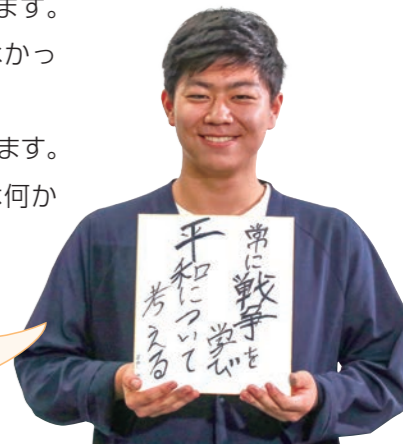 ます。
かっ
ます。
何か
常に戦争を
学び
平和について
考える